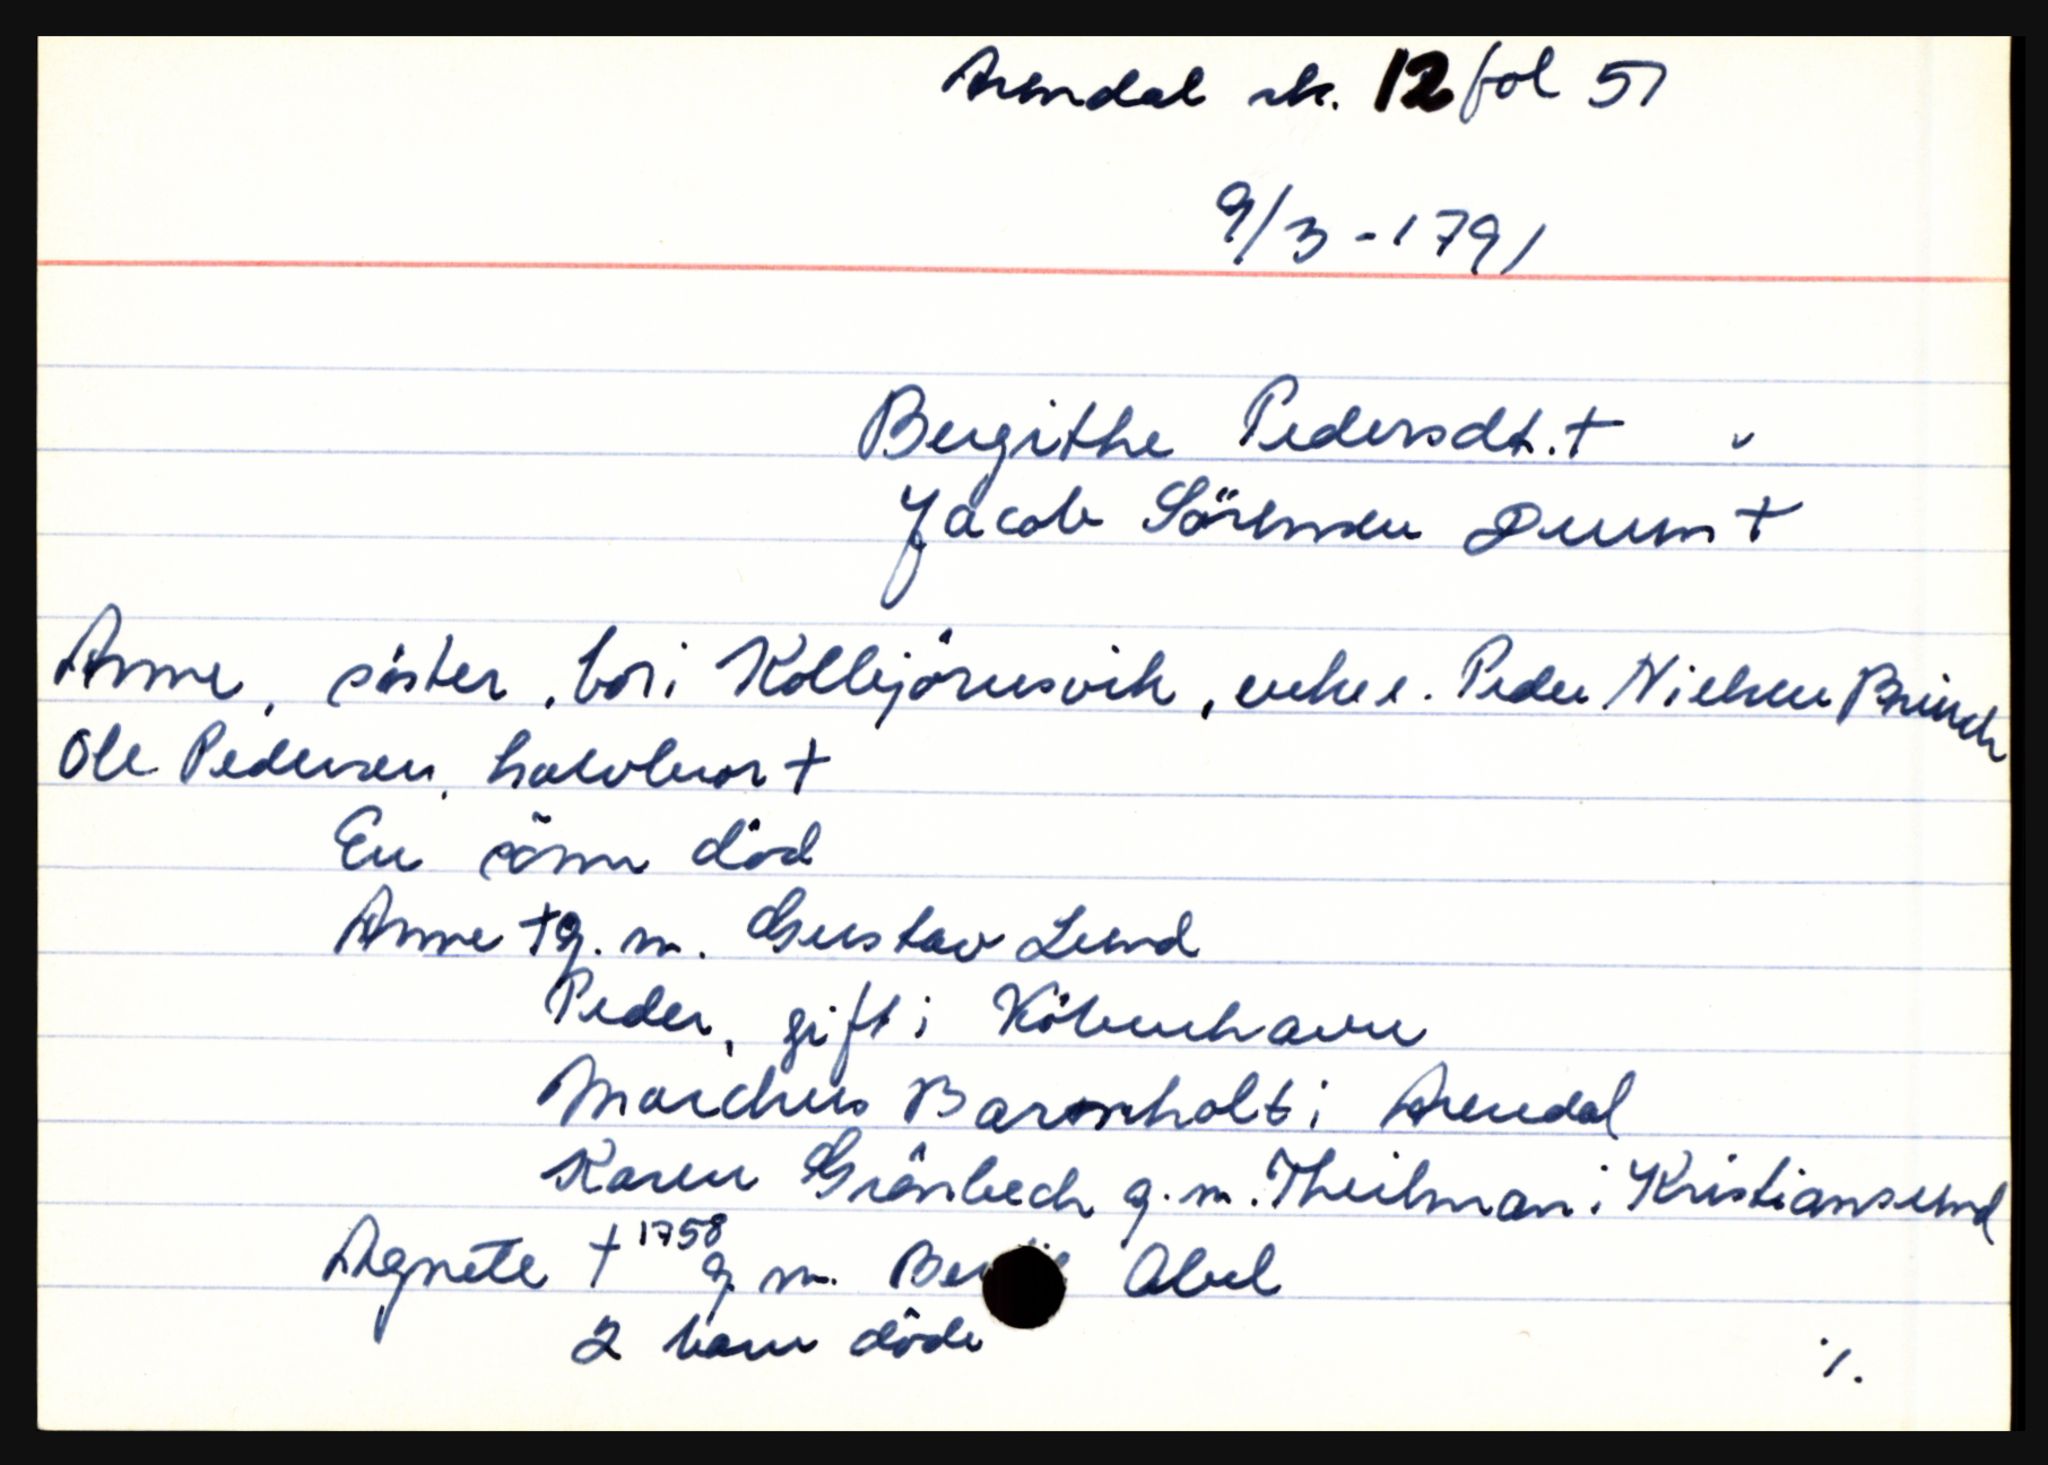 Arendal sk. 12 fol 51
9/3 - 1791
Bergithe Pedersdt. †
Jacob Sörensen Duus †
Anne, söster, bor i Kolbjörnsvik, enke e. Peder Nielsen Brinch
Ole Pedersen, halvbror †
En sönn död
Anne † g. m. Gustav Lund
Peder, gift i Köbenhavn
Marchus Barnholt i Arendal
Karen Grönbech g. m. Theilman i Kristiansund
Agnete † 1758 g. m. Abel
2 barn döde
./.